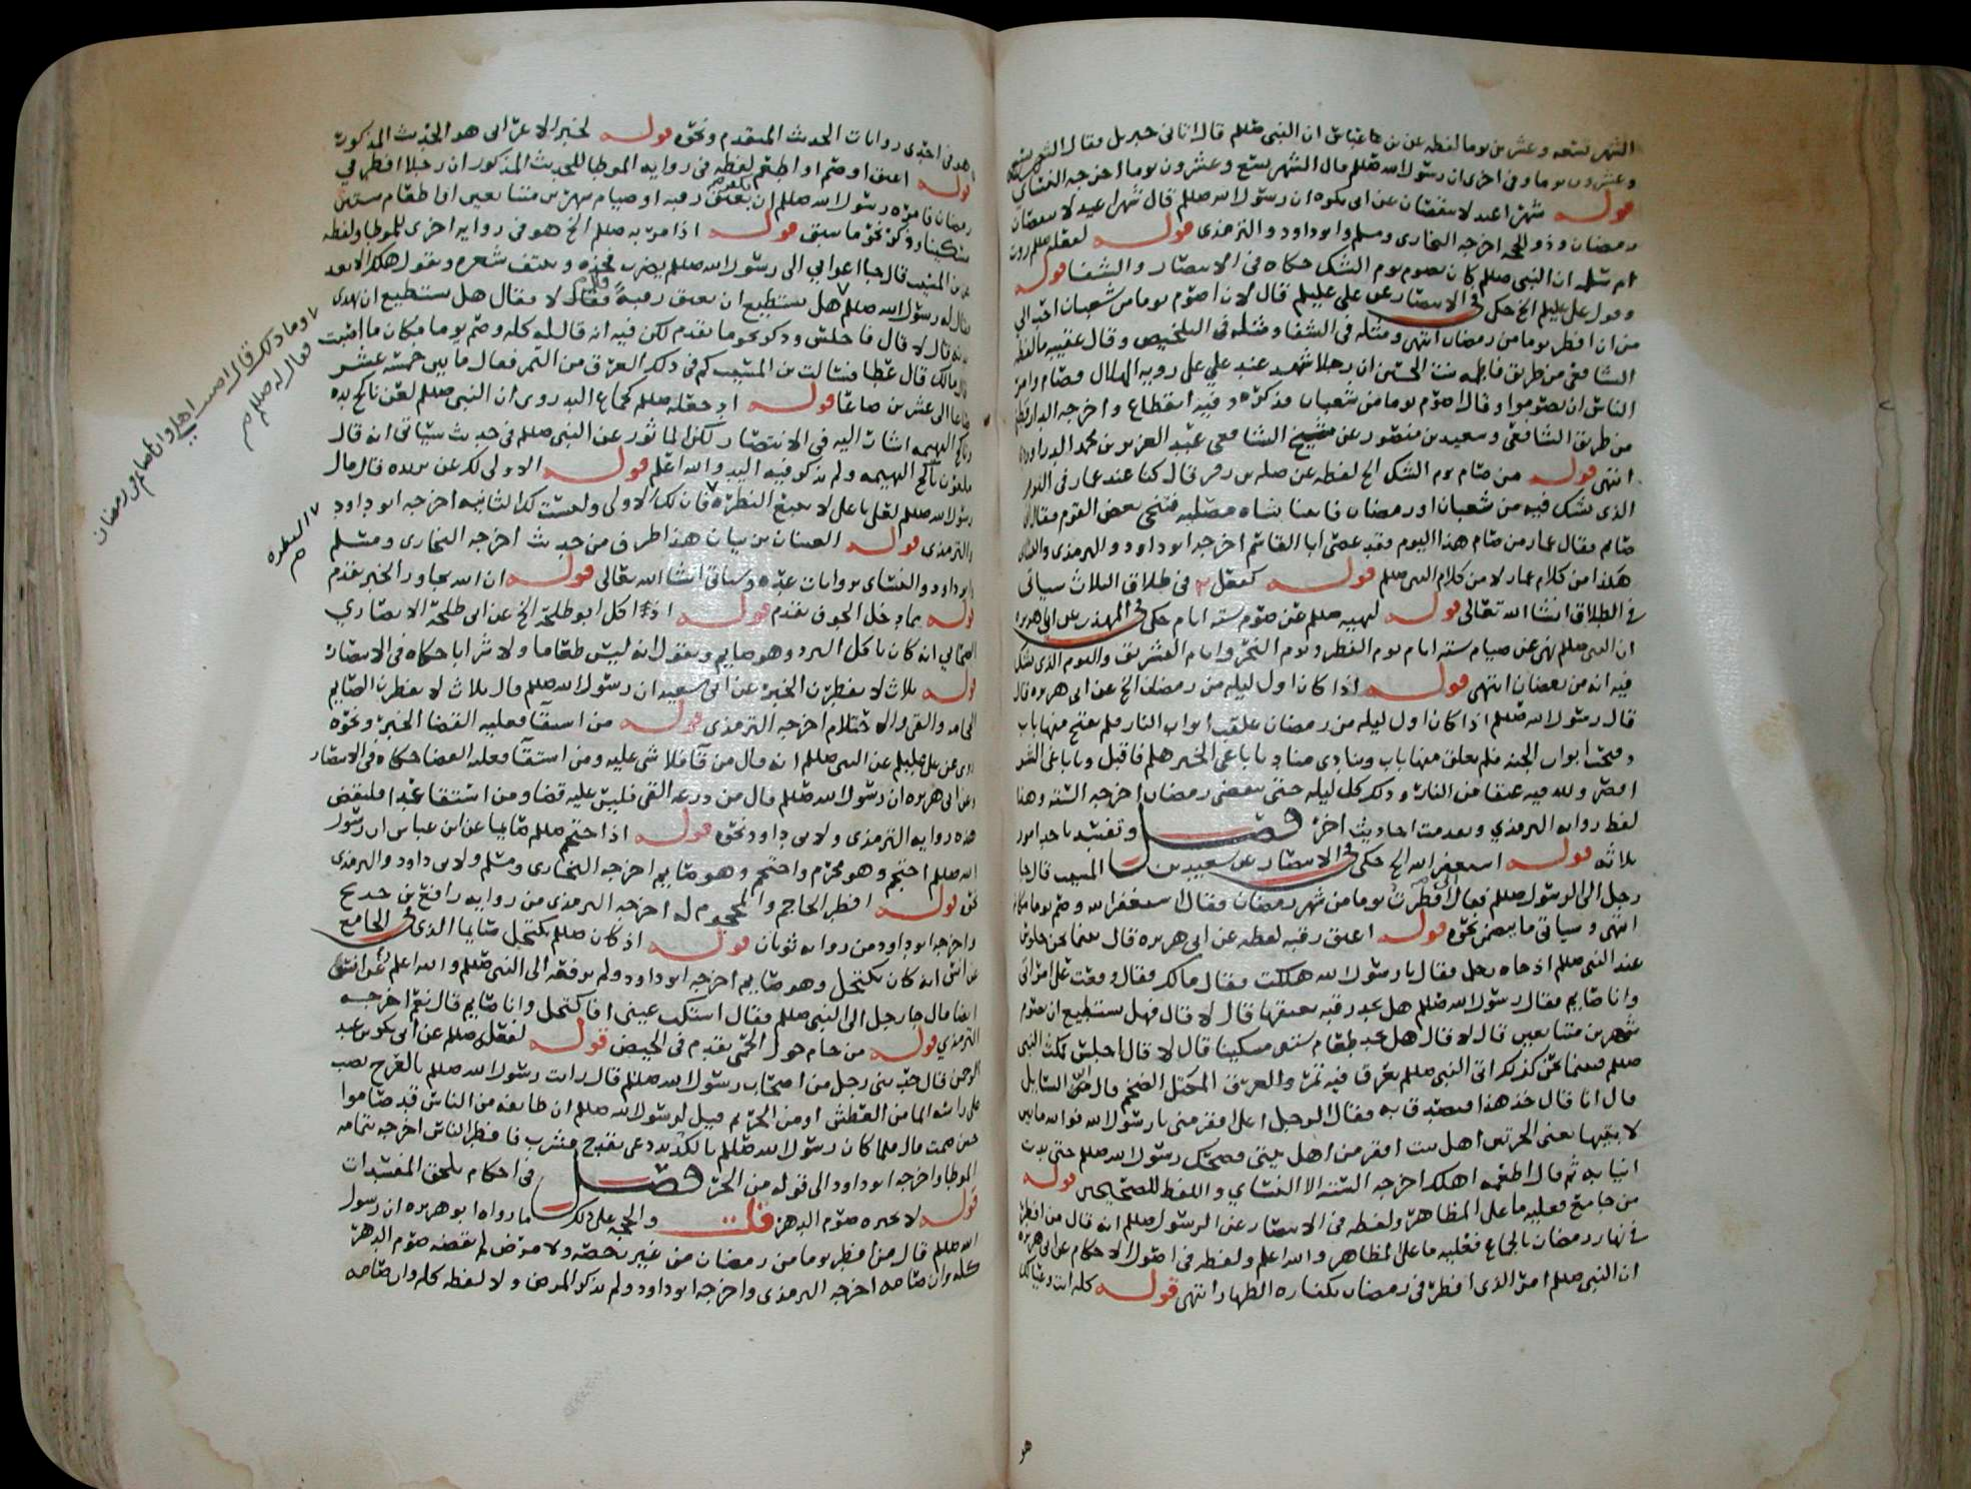 الشهر تسعه وعشرين يوما لفظه عن بن عباس ان النبي صللم قال اتاني جبريل فقال الشهر تسع
وعشرون يوما وفي اخرى ان رسول الله صللم قال الشهر تسع وعشرون يوما اخرجه النسائي
قوله شهرا عيد لا ينقصان عن ابي بكره ان رسول الله صللم قال شهرا عيد لا ينقصان
رمضان وذو الحجه اخرجه البخاري ومسلم وابو داود والترمذي قوله لفعله صللم روت
ام سلمه ان النبي صللم كان يصوم يوم الشك حكاه في الانتصار والشفا قوله
وقول علي عليلم الخ حكى في الانتصار عن علي عليلم قال لان اصوم يوما من شعبان احب الي
من ان افطر يوما من رمضان انتهى ومثله في الشفا ومثله في التلخيص وقال عقيبه ما لفظه
الشافعي من طريق فاطمه بنت الحسين ان رجلا شهد عند علي على رويه الهلال فصام وامر
الناس ان يصوموا وقال اصوم يوما من شعبان فذكره وفيه انقطاع واخرجه الدارقطني
من طريق الشافعي وسعيد بن منصور عن شيخ الشافعي عبد العزيز بن محمد الدراوردي
انتهى قوله من صام يوم الشك الخ لفظه عن صله بن زفر قال كنا عند عمار في اليوم
الذي يشك فيه من شعبان او رمضان فاتينا بشاه مصليه فتنحى بعض القوم فقال اني
صايم فقال عمار من صام هذا اليوم فقد عصى ابا القاسم اخرجه ابو داود والترمذي والنسائي
هكذا من كلام عمار لا من كلام النبي صللم قوله كفعل في طلاق الثلاث سياتي
في الطلاق انشا الله تعالى قوله لنهيه صللم عن صوم سته ايام حكى في المهذب عن ابي هريره
ان النبي صللم نهى عن صيام سته ايام يوم الفطر ويوم النحر وايام التشريق واليوم الذي يشك
فيه انه من رمضان انتهى قوله اذا كان اول ليله من رمضان الخ عن ابي هريره قال
قال رسول الله صللم اذا كان اول ليله من رمضان غلقت ابواب النار فلم يفتح منها باب
وفتحت ابواب الجنه فلم يغلق منها باب وينادي مناد يا باغي الخير هلم فاقبل ويا باغي الشر
اقصر ولله فيه عتقا من النار وذلك كل ليله حتى ينقضي رمضان اخرجه السته وهذا
لفظ روايه الترمذي وتقدمت احاديث اخر فصل وتفسد باحد امور
ثلاثه قوله استغفر الله الخ حكى في الانتصار عن سعيد بن المسيب قال جا
رجل الى الرسول صللم فقال اني افطرت يوما من شهر رمضان فقال استغفر الله وصم يوما مكانه
انتهى وسياتي ما يتضمن نحوه قوله اعتق رقبه لفظه عن ابي هريره قال بينما نحن جلوس
عند النبي صللم اذ جاه رجل فقال يا رسول الله هلكت فقال مالك فقال وقعت على امراتي
وانا صايم فقال رسول الله صللم هل تجد رقبه تعتقها قال لا قال فهل تستطيع ان تصوم
شهرين متتابعين قال لا قال هل تجد طعام ستين مسكينا قال لا قال اجلس فمكث النبي
صللم فبينما نحن كذلك اتي النبي صللم بعرق فيه تمر والعرق المكتل الضخم قال اين السايل
قال انا قال خذ هذا فتصدق به فقال الرجل اعلى افقر مني يا رسول الله فوالله ما بين
لابتيها يعني الحرتين اهل بيت افقر من اهل بيتي فضحك رسول الله صللم حتى بدت
انيابه ثم قال اطعمه اهلك اخرجه السته الا النسائي واللفظ للصحيحين قوله
من جامع فعليه ما على المظاهر ولفظه في الانتصار عن الرسول صللم انه قال من افطر
في نهار رمضان بالجماع فعليه ما على المظاهر والله اعلم ولفظه في اصول الاحكام عن ابي هريره
ان النبي صللم امر الذي افطر في رمضان بكفاره الظهار انتهى قوله كله انت وعيالك
هو
هو في احدى روايات الحديث المتقدم ونحوه قوله لخبر الاعرابي هو الحديث المذكور
قوله اعتق او صم او اطعم لفظه في روايه الموطا للحديث المذكور ان رجلا افطر في
رمضان فامره رسول الله صللم ان يكفر بعتق رقبه او صيام شهرين متتابعين او اطعام ستين
مسكينا وذكر نحو ما سبق قوله اذ امر به صللم الخ هو في روايه اخرى للموطا ولفظه
عن بن المسيب قال جا اعرابي الى رسول الله صللم يضرب فخذه وينتف شعره ويقول هلك الابعد
فقال له رسول الله صللم هل تستطيع ان تعتق رقبه فقال لا فقال هل تستطيع ان تهدي
بدنه قال لا قال فاجلس وذكر نحو ما تقدم لكن فيه انه قال له كله وصم يوما مكان ما اصبت
قال مالك قال عطا فسالت بن المسيب كم في ذلك العرق من التمر فقال ما بين خمسه عشر
صاعا الى عشرين صاعا قوله اذ جعله صللم كجماع اليد روي ان النبي صللم لعن ناكح يده
وناكح البهيمه اشار اليه في الانتصار لكن الماثور عن النبي صللم في حديث سياتي انه قال
ملعون ناكح البهيمه ولم يذكر فيه اليد والله اعلم قوله الاولى لك عن بريده قال قال
رسول الله صللم لعلي يا علي لا تتبع النظره فان لك الاولى وليست لك الثانيه اخرجه ابو داود
والترمذي قوله العينان تزنيان هذا طرف من حديث اخرجه البخاري ومسلم
وابو داود والنسائي بروايات عده وسياتي انشا الله تعالى قوله ان الله تجاوز الخبر تقدم
قوله بما دخل الجوف تقدم قوله اذ اكل ابو طلحه الخ عن ابي طلحه الانصاري
الصحابي انه كان ياكل البرد وهو صايم ويقول انه ليس طعاما ولا شرابا حكاه في الانتصار
قوله ثلاث لا يفطرن الخبر عن ابي سعيد ان رسول الله صللم قال ثلاث لا يفطرن الصايم
الحجامه والقي والاحتلام اخرجه الترمذي قوله من استقا فعليه القضا الخبر ونحوه
روي عن علي عليلم عن النبي صللم انه قال من قا فلا شي عليه ومن استقا فعليه القضا حكاه في الانتصار
وعن ابي هريره ان رسول الله صللم قال من ذرعه القي فليس عليه قضا ومن استقا عمدا فليقض
هذه روايه الترمذي ولابي داود نحوه قوله اذ احتجم صللم صايما عن ابن عباس ان رسول
الله صللم احتجم وهو محرم واحتجم وهو صايم اخرجه البخاري ومسلم ولابي داود والترمذي
نحوه قوله افطر الحاجم والمحجوم له اخرجه الترمذي من روايه رافع بن خديج
واخرجه ابو داود من روايه ثوبان قوله اذ كان صللم يكتحل صايما الذي في الجامع
عن انس انه كان يكتحل وهو صايم اخرجه ابو داود ولم يرفعه الى النبي صللم والله اعلم وعن انس
ايضا قال جا رجل الى النبي صللم فقال اشتكت عيني افاكتحل وانا صايم قال نعم اخرجه
الترمذي قوله من حام حول الحمى تقدم في الحيض قوله لفعله صللم عن ابي بكر بن عبد
الرحمن قال حدثني رجل من اصحاب رسول الله صللم قال رايت رسول الله صللم بالعرج يصب
على راسه الما من العطش او من الحر ثم قيل لرسول الله صللم ان طايفه من الناس قد صاموا
حين صمت قال فلما كان رسول الله صللم بالكديد دعى بقدح فشرب فافطر الناس اخرجه بتمامه
الموطا واخرجه ابو داود الى قوله من الحر فصل في احكام تلحق المفسدات
قوله لا يجزه صوم الدهر قلت والحجه على ذلك ما رواه ابو هريره ان رسول
الله صللم قال من افطر يوما من رمضان من غير رخصه ولا مرض لم يقضه صوم الدهر
كله وان صامه اخرجه الترمذي واخرجه ابو داود ولم يذكر المرض ولا لفظه كله وان صامه
وما ذلك قال اصبت اهلي وانا صايم في رمضان
فقال له صللم صح
النظره
صح